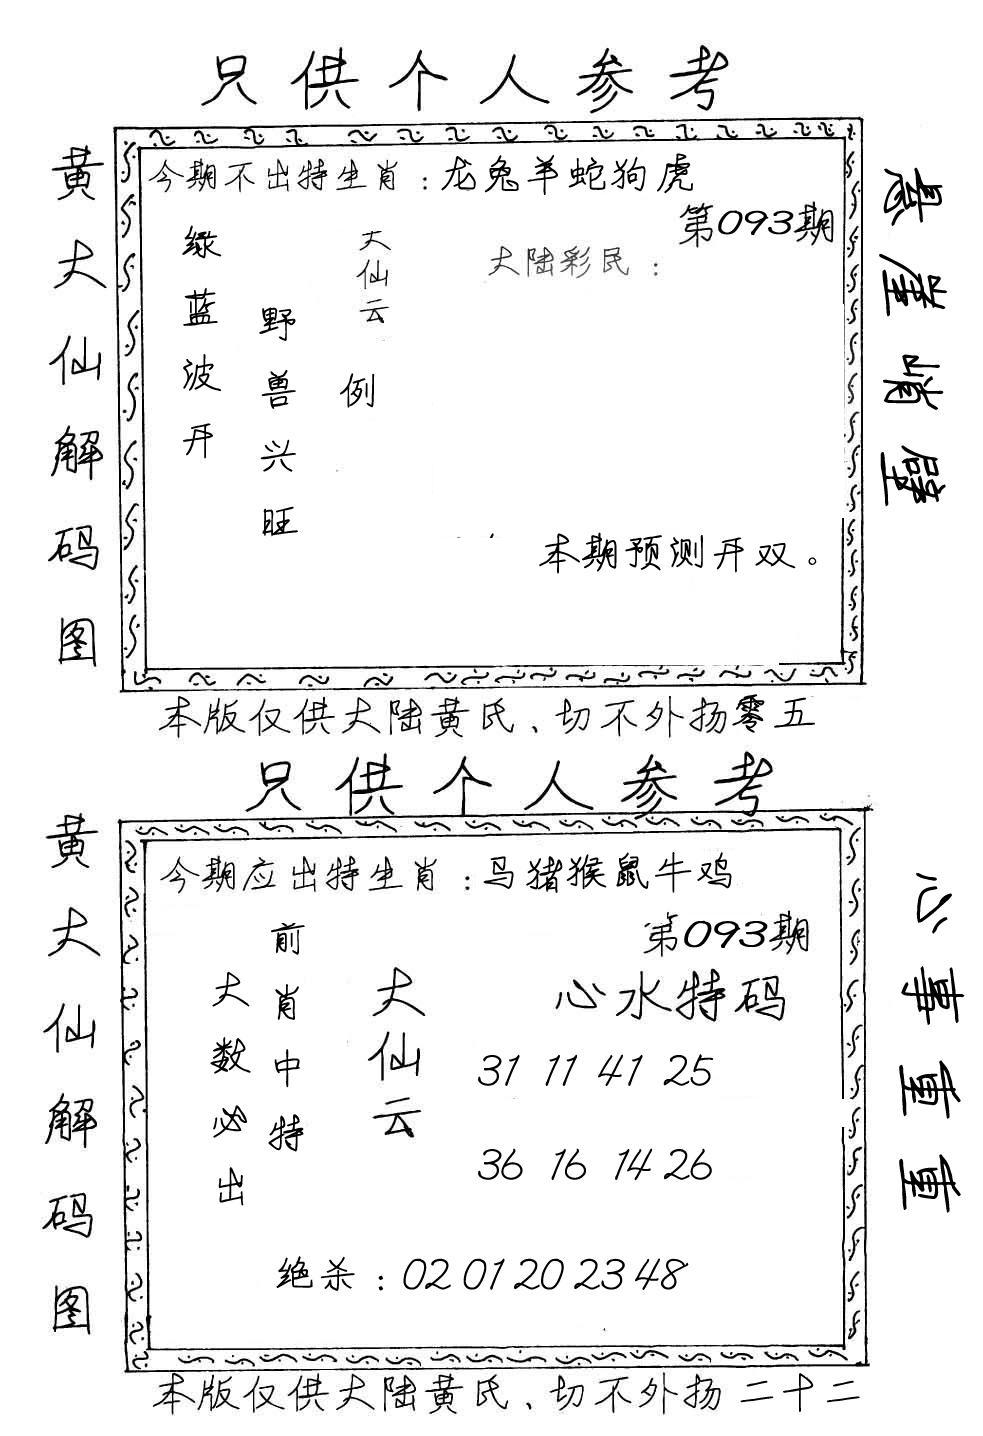 只供个人参考
黄大仙解码图
今期不出特生肖：龙兔羊蛇狗虎
第093期
大陆彩民：
大仙云
例
野兽兴旺
绿蓝波开
本期预测开双。
悬崖峭壁
本版仅供大陆黄氏、切不外扬零五
只供个人参考
黄大仙解码图
今期应出特生肖：马猪猴鼠牛鸡
第093期
心水特码
大仙云
前肖中特
大数必出
31 11 41 25
36 16 14 26
绝杀：02 01 20 23 48
心事重重
本版仅供大陆黄氏、切不外扬二十二